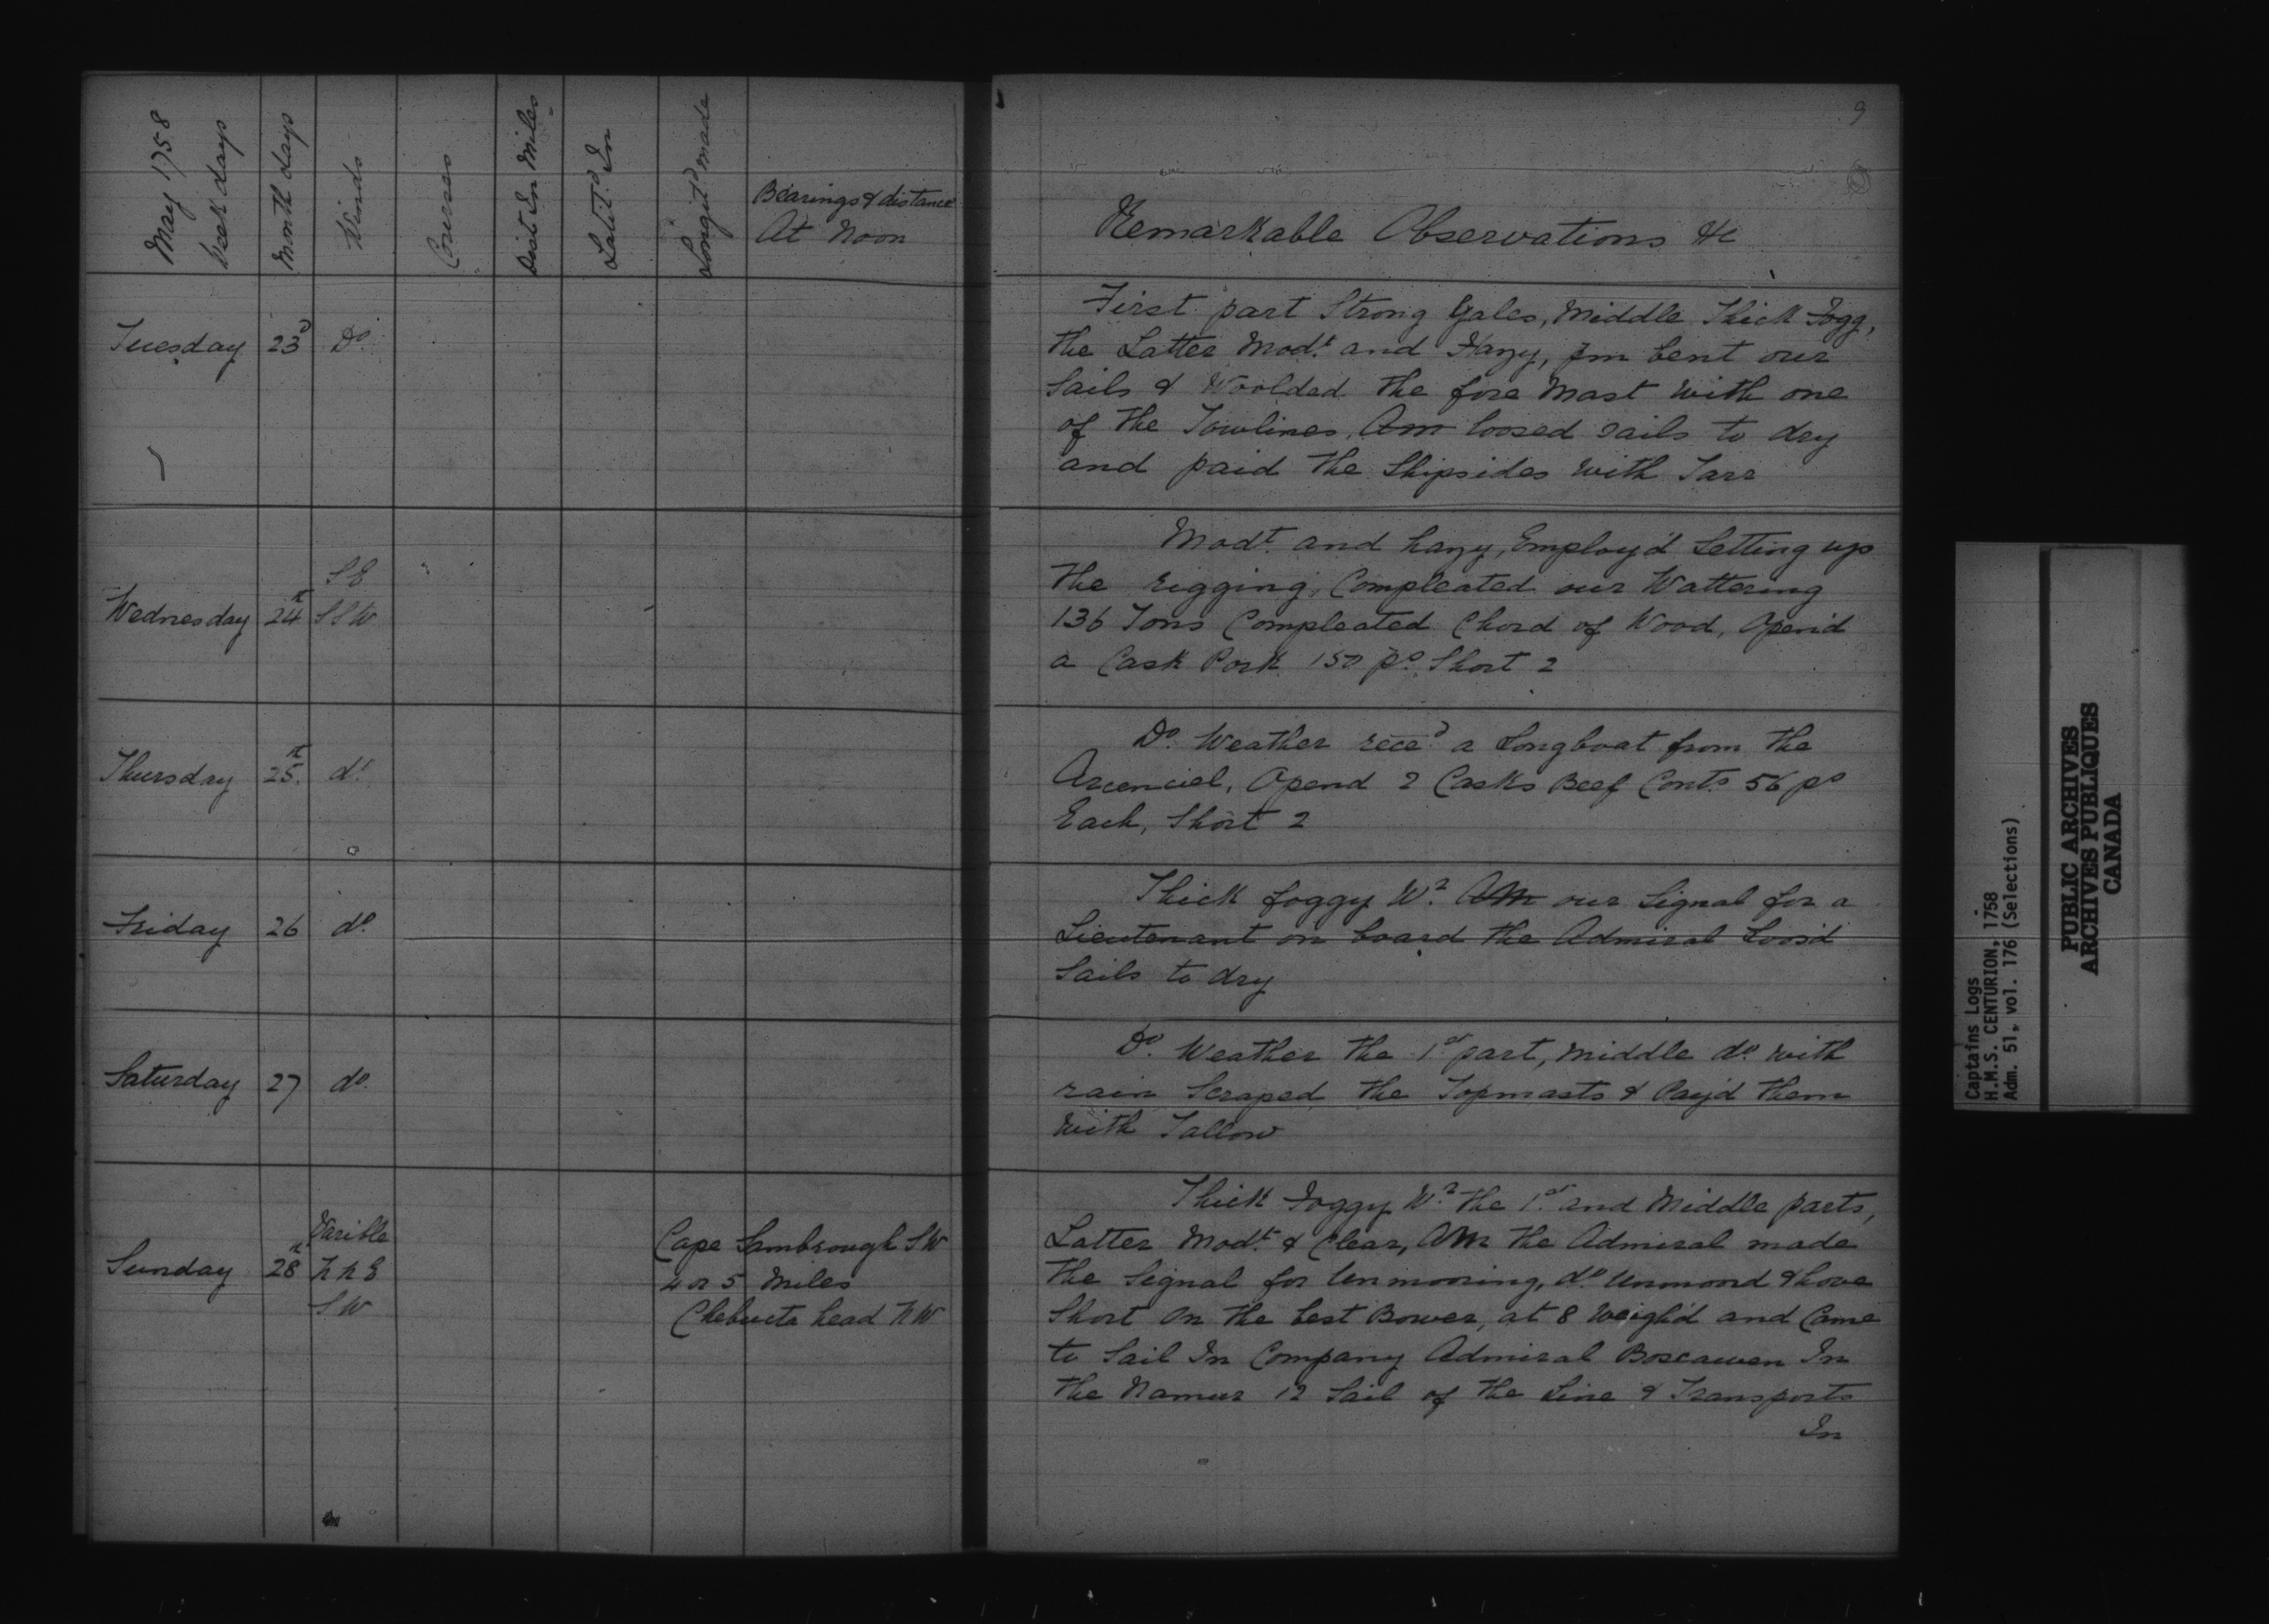 May 1758
Week days
Month days
Winds
Courses
Dist In Miles
Latitd. In
Longitd made
Bearings & distance
At Noon
9
Remarkable Observations &c
Tuesday 23d Do.
First part Strong Gales, Middle Thick Fogg,
the Latter Modt. and Hazy, Pm bent our
Sails & Woolded the fore Mast with one
of the Towlines, Am loosed sails to dry
and paid the Shipsides with Tarr
SE
Wednesday 24th SSW
Modt. and hazy, Employ'd Setting up
the rigging, Compleated our Wattering
136 Tons Compleated Chord of Wood, Open'd
a Cask Pork 150 ps. Short 2
Thursday 25th. do.
Do. Weather reced. a Longboat from the
Arcenciel, Opend 2 Casks Beef Conts. 56 ps
Each, Short 2
Friday 26 do.
Thick foggy Wr. AM our Signal for a
Lieutenant on board the Admiral Loos'd
Sails to dry
Saturday 27 do.
Do. Weather the 1st part, Middle do. with
rain Scraped the Topmasts & Pay'd them
with Tallow
Varible
Sunday 28th NNE
SW
Cape Sambrough SW
4 or 5 Miles
Chebucto head NW
Thick Foggy Wr. the 1st. and Middle parts,
Latter Modt. & Clear, AM the Admiral made
the Signal for Unmooring, do. Unmoord & hove
Short On the best Bower, at 8 Weigh'd and Came
to Sail In Company Admiral Boscawen In
the Namur 12 Sail of the Line & Transports
In
Captains Logs
H.M.S. CENTURION, 1758
Adm. 51, vol. 176 (Selections)
PUBLIC ARCHIVES
ARCHIVES PUBLIQUES
CANADA